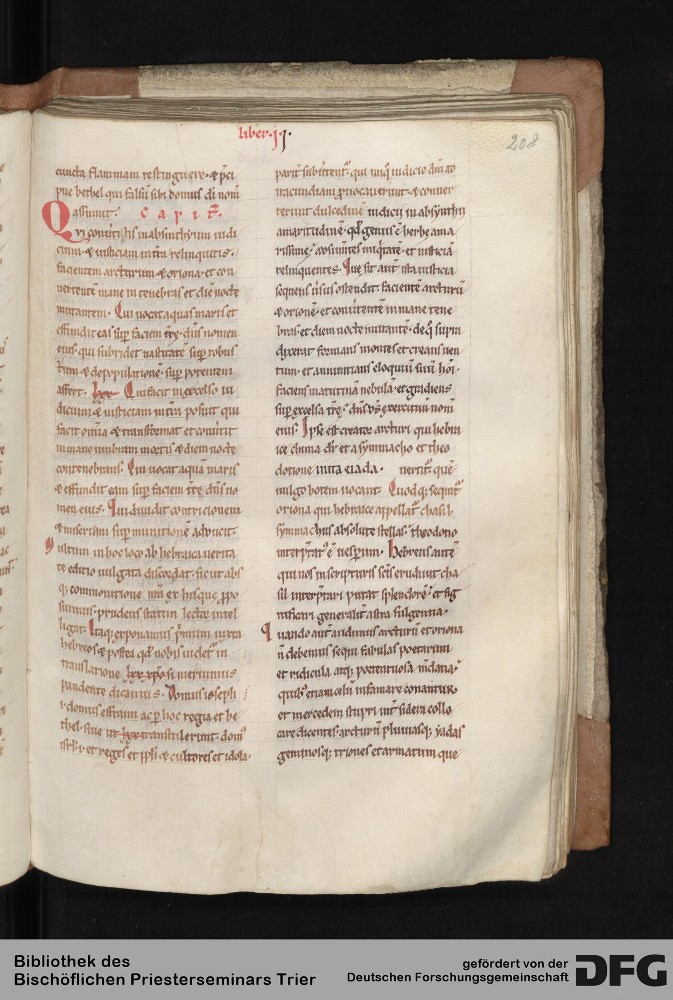 liber · I I ·
208
cuncta flammam restinguere · & p̄ci
pue bethel qui falsū sibi domus dī nom̄
assumit . C a p i t̄ .
Qui conuertitis in absinthium iudi
cium · & iusticiam in terra relinquitis ·
facientem arcturum & oriona · et con
uertentē mane in tenebras et diē nocte
mutantem · Qui uocat aquas maris et
effundit eas sup faciem trę · dn̄s nomen
eius · qui subridet uastitatē sup robus
tum & depopulationē sup potentem
affert · lxx Qui facit in excelso iu
dicium & iusticiam in terra posuit qui
facit omnia & transformat et conuertit
in mane umbram mortis & diem nocte
contenebrans · Qui uocat aquā maris
& effundit eam sup faciem trę dn̄s no
men eius · Qui diuidit contricionem
& miseriam sup munitionē adducit ·
Multum in hoc loco ab hebraica uerita
te editio uulgata discordat · sic ut abs
q; commonitione nr̄a et hisque ppo
suimus · prudens statim lector intel
ligat · Itaq; exponamus primum iuxta
hebreos & postea qd nobis uidetur in
translatione lxx xp̄o si meruimus
pandente dicamus · Domus ioseph
i · domus effraim ac p hoc regia et be
thel · siue ut lxx transtulerunt · dom
isrl · i · et reges et ppli & cultores et idola
parit subuertent · qui suū iudicio dm̄ ad
iracundiam puocauerunt · & conuer
terunt dulcedinē iudicii in absynthii
amaritudinē · qd genus ē herbę ama
rissimę · absumentes iniqtatē · et iusticiā
relinquentes · Que sit aut ista iusticia
sequens uersus ostendit · facientē arcturū
& orionē · et conuertentē in mane tene
bras et diem nocte mutantē · de q supra
dixerat formans montes et creans uen
tum · et annuntians eloquiū suū hōi ·
faciens matutinā nebulā · et gradiens
sup excelsa trę · dn̄s ds̄ exercituū nom̄
eius · Ipse est creator arcturi qui hebra
ice chima dr̄ et a symmacho et theo
dotione inuta eiada · uertit quē
uulgo botem uocant · Quodq; sequitur
oriona qui hebraice appellat chasil ·
symmachus absolute stellas · theodotio
interptat ē uesperum · Hebreus autē
qui nos in scripturis scīs erudiuit cha
sil interptari putat splendorē · et sig
nificari generaliter astra fulgentia ·
Quando aut audimus arcturū et oriona
n̄ debemus sequi fabulas poetarum
et ridicula atq; portentuosa mdacia ·
quib etiam celū infamare conantur ·
et mercedem stupri int sidera collo
care dicentes · arcturū pluuiasq; yadas
geminosq; triones et armatum que
Bibliothek des
Bischöflichen Priesterseminars Trier
gefördert von der
Deutschen Forschungsgemeinschaft
DFG